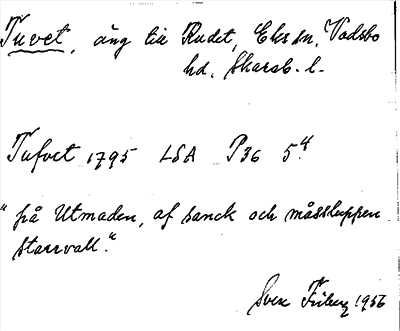 Tuvet, äng till Rudet, Eks sn, Vadsbo
hd, Skarab. l.
Tufvet 1795 LSA P36 5:4
"på Utmaden, af sanck och måssluppen
starrvall."
Sven Friberg 1956